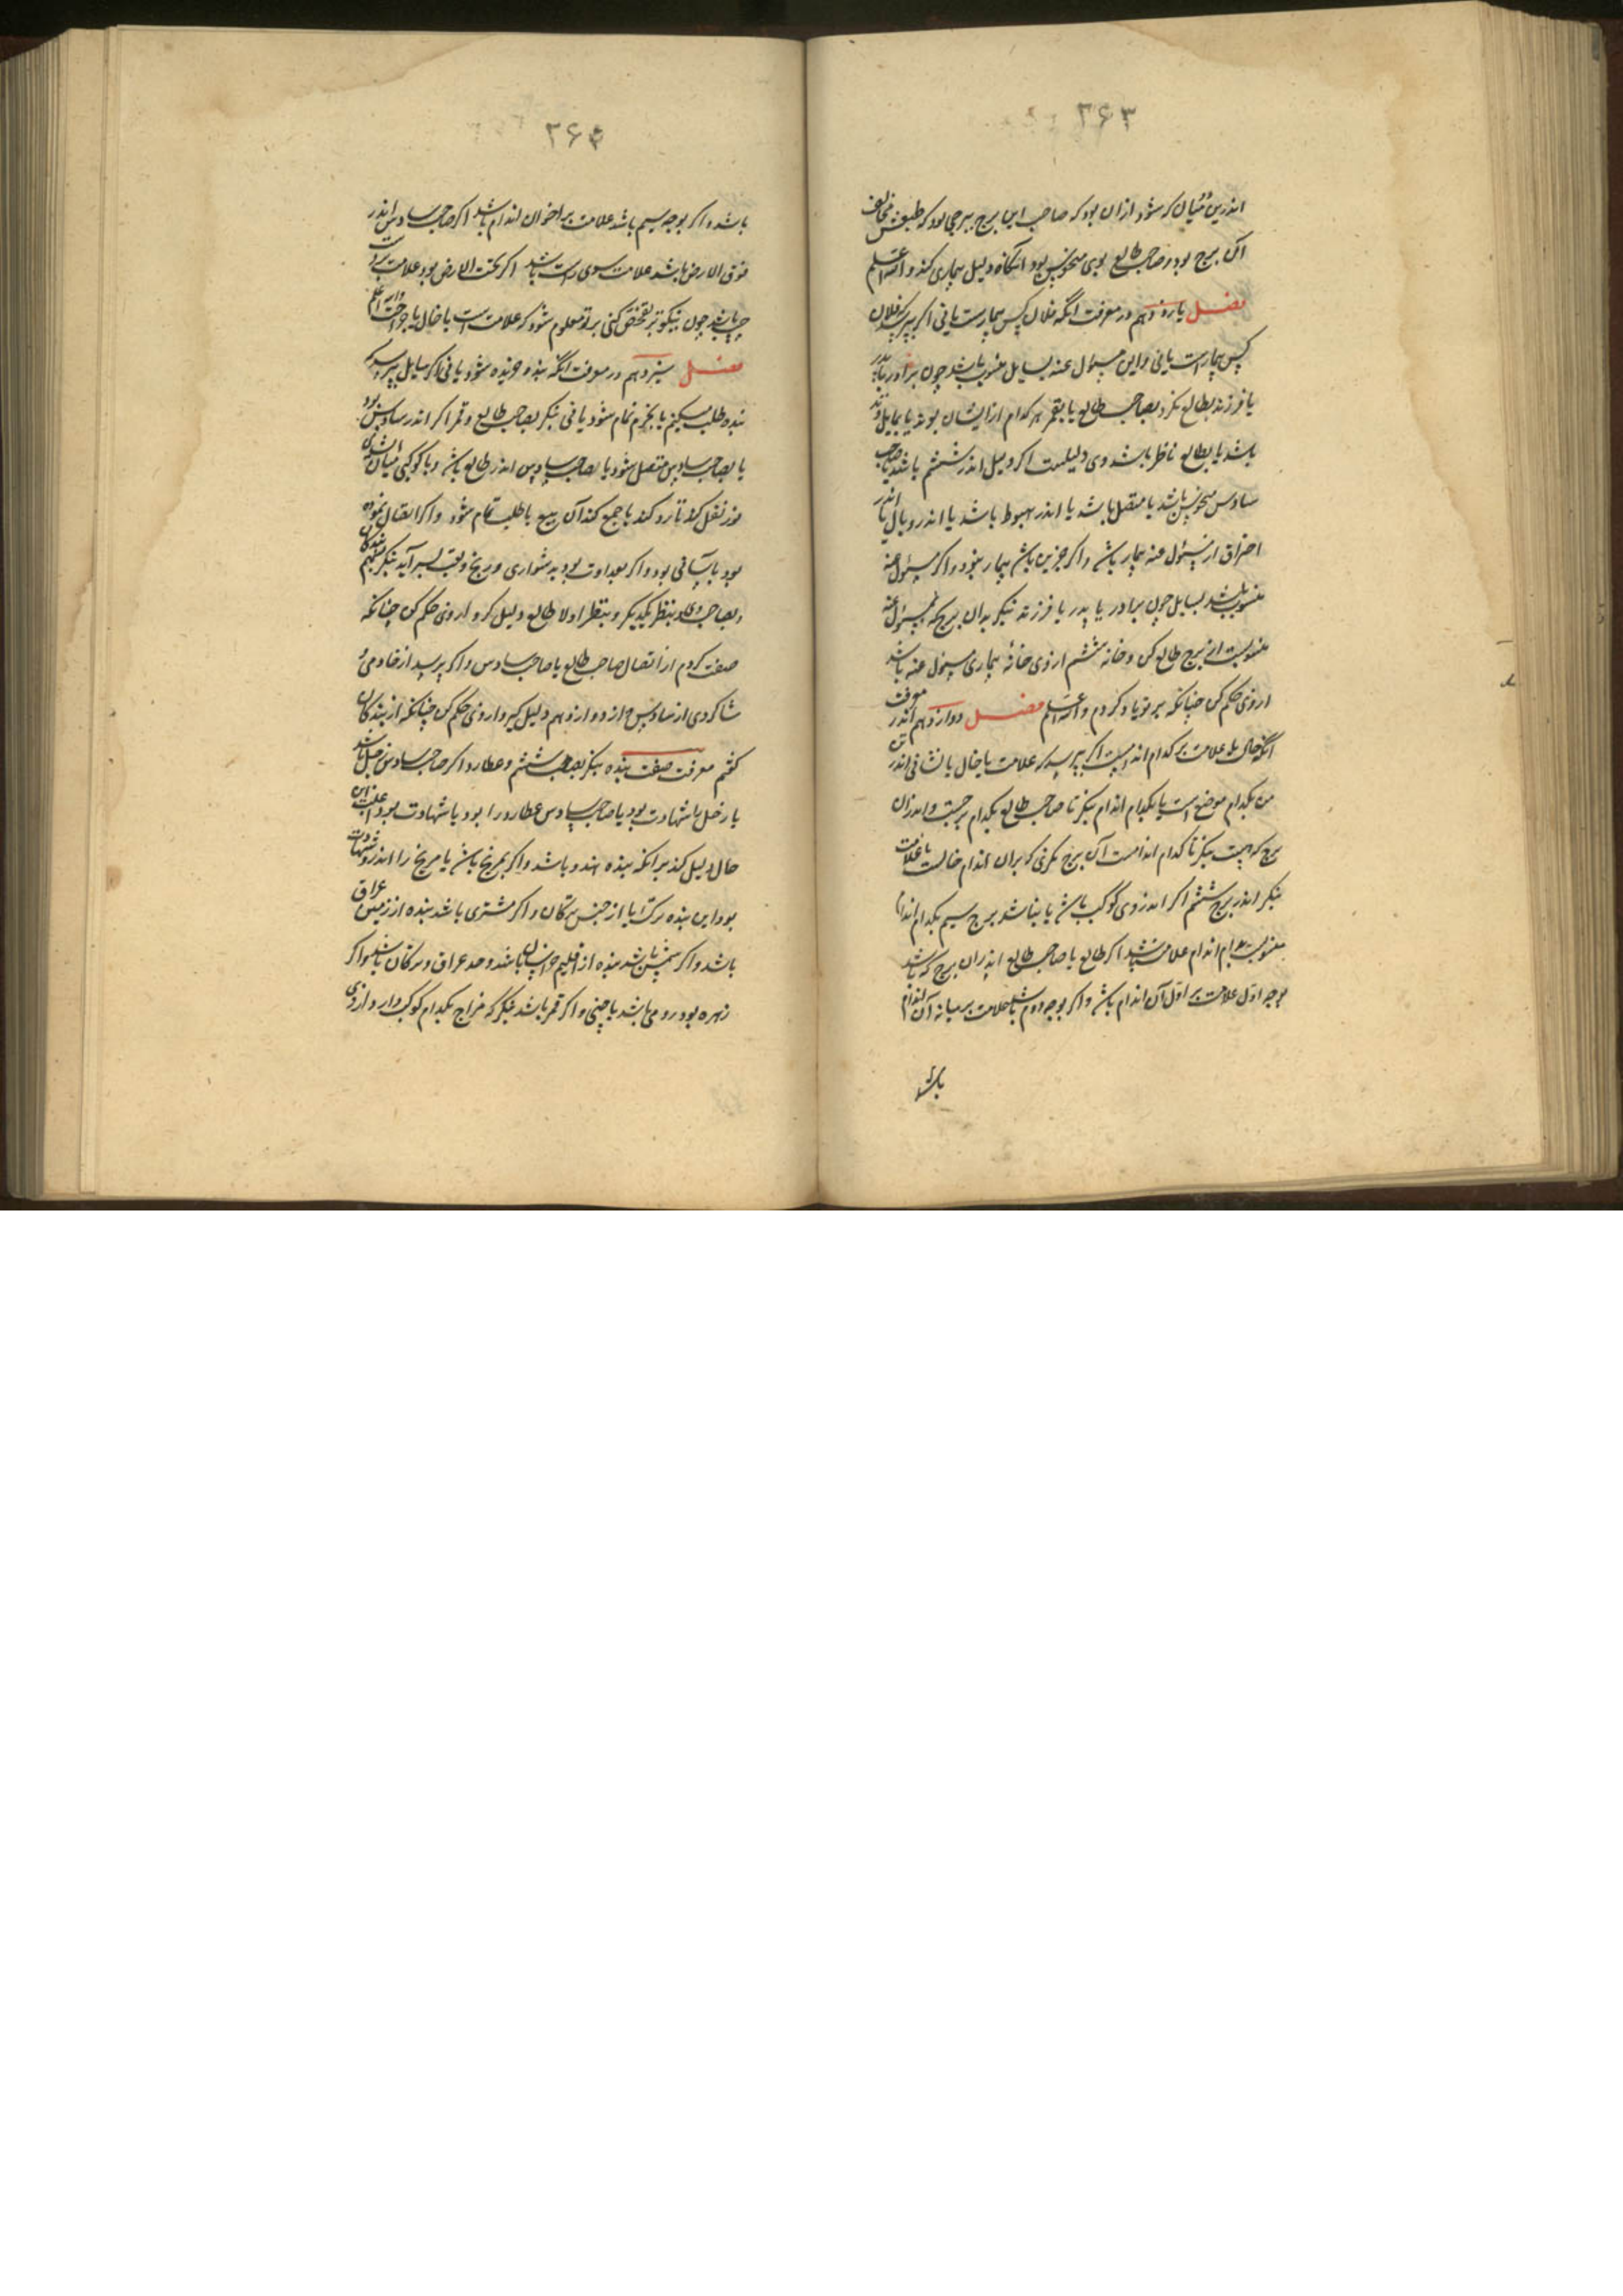 ۲۶۳
اندرین میان کر شود ازان بود که صاحب این برج ببرجی بود که طبعش مخالف
آن برج بود و صاحب طالع بوی منحوس بود آنگاه دلیل بیماری کند والله اعلم
فصل یازدهم در معرفت آنکه فلان کس بیمارست یا نی اکر پرسد که فلان
کس بیمارست یا نی و این مسؤل عنه بسایل منسوب باشد چون برادر یا پدر
یا فرزند بطالع نکرد و بصاحب طالع یا بقمر هر کدام از ایشان بوند یا
باشد یا بطالع ناظر باشد وی دلیلست اکر دلیل اندر ششم باشد یا صاحب
سادس منحوس باشد یا متصل باشد یا اندر هبوط باشد یا اندر وبال یا اندر
احتراق ار مسئول عنه بیمار باشد و اکر جزین باشد بیمار نبود و اکر مسئول عنه
منسوب باشد بسایل چون برادر یا پدر یا فرزند بنکر بدان برج که مسئول عنه
منسوبست آن برج طالع کن و خانه ششم از وی خانه بیماری مسئول عنه باشد
از وی حکم کن چنانکه بر تو یاد کردم والله اعلم فصل دوازدهم اندر معرفت
آنکه خال یا علامت بر کدام اندامست اکر بپرسد که علامت یا خال یا نشانی اندر تن
من بکدام موضع است یا بکدام اندام بنکر تا صاحب طالع بکدام برجست و اندران
برج که هست بنکر تا کدام اندامست آن برج نکری که بران اندام خالست یا علامت
بنکر اندر برج ششم اکر اندر وی کوکب باشد یا نباشد برج سیم بکدام اندام
منسوبست بدام اندام علامت باشد اکر طالع یا صاحب طالع اندران برج که باشد
بوجه اول علامت بر اول آن اندام باشد و اکر بوجه دوم باشد علامت بر میانه آن اندام
باشد
۲۶۴
باشد و اکر بوجه سیم باشد علامت بر اخران اندام باشد اکر صاحب سادس اندر
فوق الارض باشد علامت سوی راست باشد اکر تحت الارض بود علامت بر
چپ باشد چون نیکوتر تفحص کنی بر تو معلوم شود که علامتست یا خال یا جراحت والله اعلم
فصل سیزدهم در معرفت آنکه بنده خریده شود یا نی اکر سایل پرسد که
بنده طلب میکنم یا بخرم تمام شود یا نی بنکر بصاحب طالع و قمر اکر اندر سادس بود
یا بصاحب سادس متصل شود یا صاحب سادس اندر طالع باشد و یا کوکبی میان ایشان
نور نقل کند تا رد کند یا جمع کند آن بیع یا طلب تمام شود و اکر اتصال بمودت
بود بآسانی بود و اکر بعداوت بود بدشواری و رنج و تعب بسر آید بنکر بششم
و بصاحب وی و بنظر یکدیکر و بنظر اولا طالع دلیل کرد و از وی حکم کن چنانکه
صفت کردم از اتصال صاحب طالع یا صاحب سادس و اکر پرسد از خادمی و
شاکردی از سادس و از دوازدهم دلیل کیر و از وی حکم کن چنانکه از بندکان
کفتم معرفت صفت بنده بنکر بصاحب ششم و عطارد اکر صاحب سادس زحل باشد
یا زحل با شهادت بود یا صاحب سادس عطارد را بود یا شهادت بود
حال دلیل کند بر آنکه بنده هندو باشد و اکر مریخ باشد یا مریخ را اندر و شهادت
بود این بنده ترک یا از جنس ترکان و اکر مشتری باشد بنده از زمین عراق
باشد و اکر شمس باشد بنده از اقلیم خراسان باشد و حد عراق و ترکان باشد و اکر
زهره بود رومی باشد یا چینی و اکر قمر باشد بنکر که مزاج بکدام کوکب دارد از وی